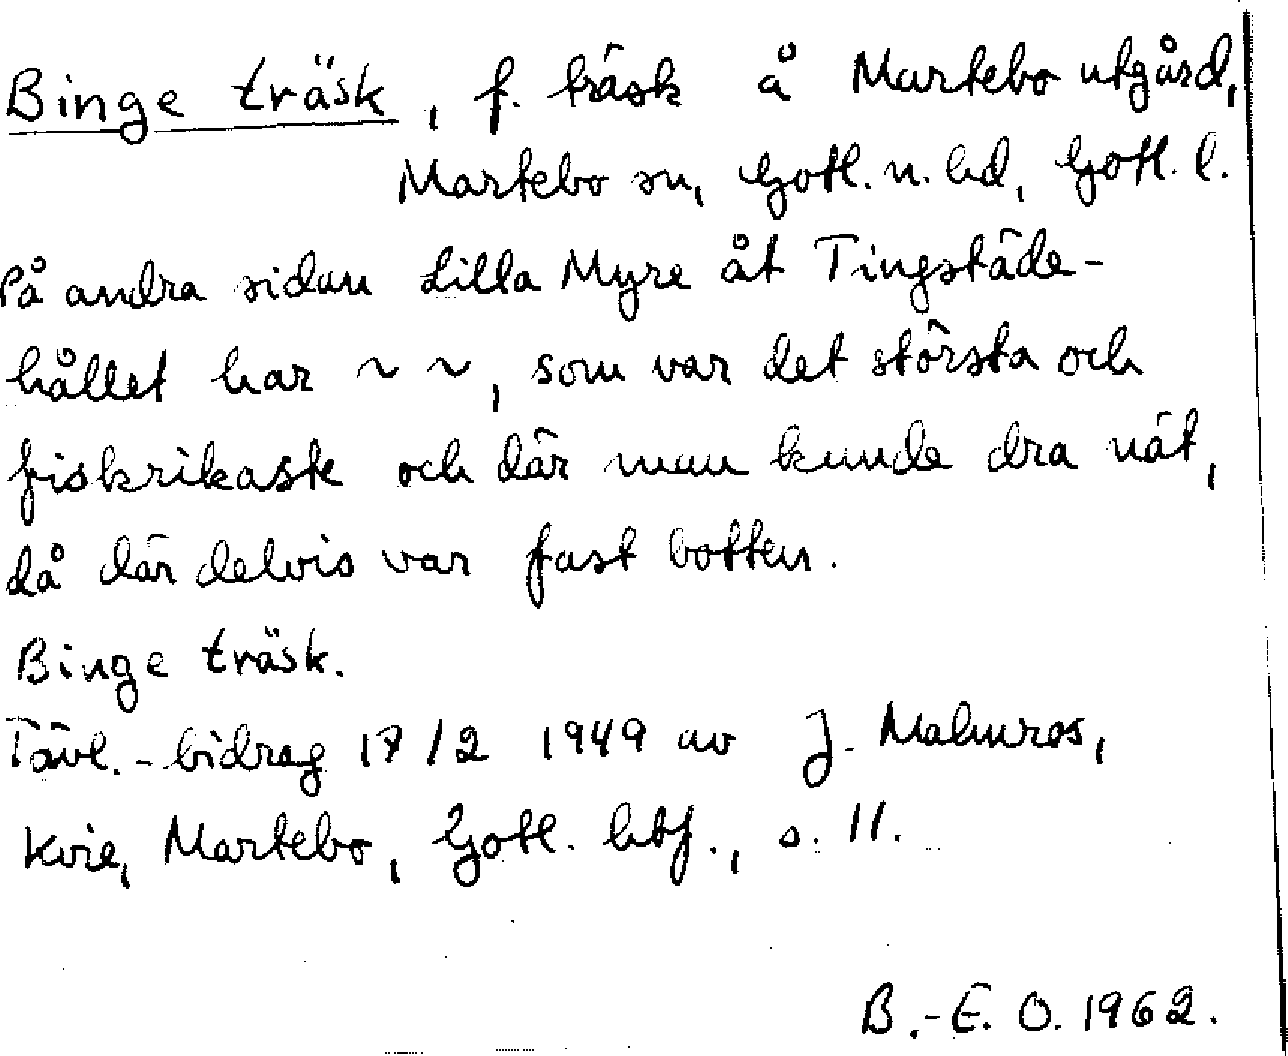 Binge träsk, f. träsk å Martebo utgård,
Martebo sn, Gotl. n. hd, Gotl. l.
På andra sidan Lilla Myre åt Tingstäde-
hållet har ~ ~, som var det största och
fiskrikaste och där man kunde dra nät,
då där delvis var fast botten.
Binge träsk.
Tävl.-bidrag 17/2 1949 av J. Malmros,
Kvie, Martebo, Gotl. htf., s. 11.
B.-E. O. 1962.